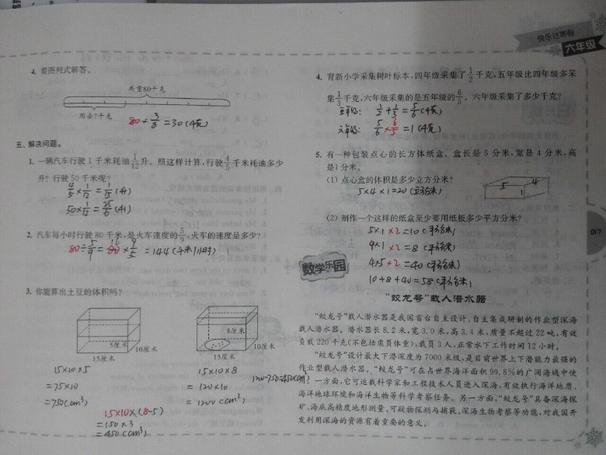 快乐过寒假
六年级
4. 看图列式解答。
共重80千克
用去?千克
80×3/8=30(千克)
五、解决问题。
1. 一辆汽车行驶1千米耗油1/12升。照这样计算,行驶4/5千米耗油多少
升?行驶50千米呢?
4/5×1/12=1/15(升)
50×1/12=25/6(升)
2. 汽车每小时行驶80千米,是火车速度的5/9,火车的速度是多少?
80÷5/9=80×9/5=144(千米/小时)
3. 你能算出土豆的体积吗?
5厘米
10厘米
15厘米
8厘米
10厘米
15厘米
15×10×5
=75×10
=750(cm³)
15×10×8
=120×10
=1200(cm³)
1200-750=450(cm³)
15×10×(8-5)
=150×3
=450(cm³)
4. 育新小学采集树叶标本,四年级采集了1/2千克,五年级比四年级多采
集1/3千克,六年级采集的是五年级的6/5。六年级采了多少千克?
五年级: 1/2+1/3=5/6(千克)
六年级: 5/6×6/5=1(千克)
5. 有一种装点心的长方体纸盒,盒长是5分米,宽是4分米,高
是1分米。
(1) 点心盒的体积是多少立方分米?
5×4×1=20(立方分米)
5
4
1
(2) 制作一个这样的纸盒至少要用纸板多少平方分米?
5×1×2=10(平方分米)
4×1×2=8(平方分米)
4×5×2=40(平方分米)
10+8+40=58(平方分米)
数学乐园
“蛟龙号”载人潜水器
“蛟龙号”载人潜水器是我国首台自主设计、自主集成研制的作业型深海
载人潜水器。潜水器长8.2米,宽3.0米,高3.4米,质量不超过22吨,有效
负载220千克(不包括乘员体重),载员3人,正常水下工作时间12小时。
“蛟龙号”设计最大下潜深度为7000米级,是目前世界上下潜能力最强的
作业型载人潜水器。“蛟龙号”可在占世界海洋面积99.8%的广阔海域中使
用:一方面,它可运载科学家和工程技术人员进入深海,有效执行海洋地质、
海洋地球环境和海洋生物等科学考察任务。另一方面,“蛟龙号”具备深海探
矿、海底高精度地形测量、可疑物探测与捕获、深海生物考察等功能,对我国开
发利用深海的资源有着重要的意义。